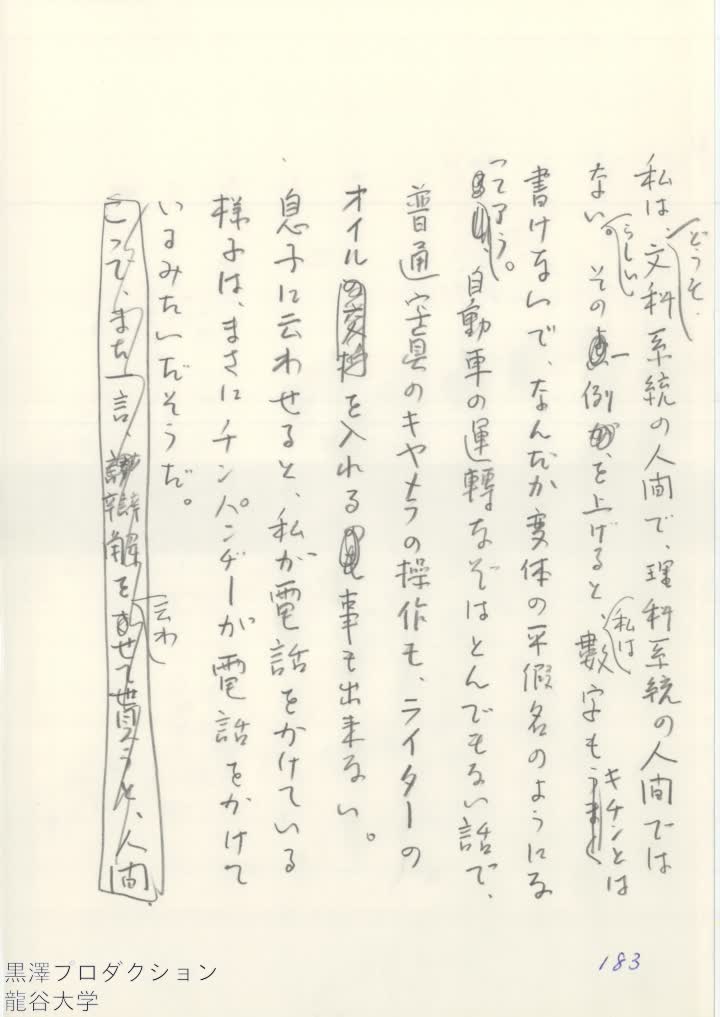 私は、どうも文科系統の人間で、理科系統の人間では
ない。らしい。その一例を上げると、私は数字もうまくキチンとは
書けないで、なんだか変体の平仮名のようにな
って了う。
自動車の運轉なぞはとんでもない話で、
普通写真のキヤメラの操作も、ライターの
オイルを入れる事も出来ない。
息子に云わせると、私が電話をかけている
様子は、まさにチンパンヂーが電話をかけて
いるみたいだそうだ。
こゝで、また一言、辯解を云わせて貰うと、人間
183
黒澤プロダクション
龍谷大学